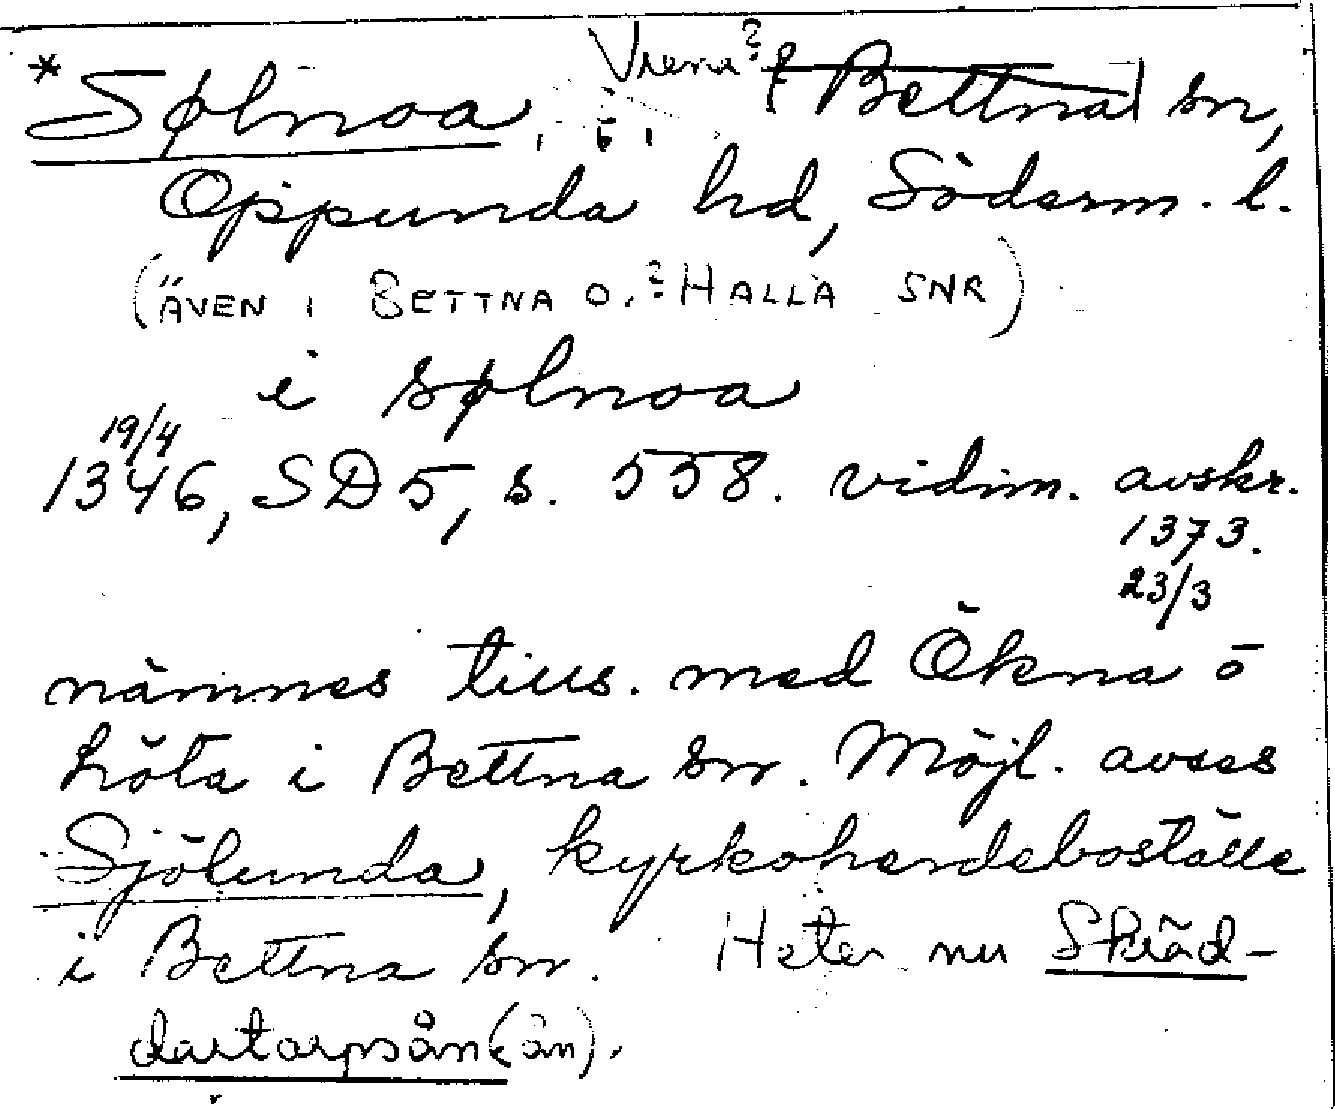 *Sølnoa, Vrena? [Bettna] sn,
Oppunda hd, Söderm. l.
(ÄVEN I BETTNA O. ?HALLA SNR)
i sølnoa
19/4
1346, SD 5, s. 558. vidim. avskr.
1373.
23/3
nämnes tills. med Ökna o
Löta i Bettna sn. Möjl. avses
Sjölunda, kyrkoherdeboställe
i Bettna sn. Heter nu Skräd-
dartorpsån (ån).